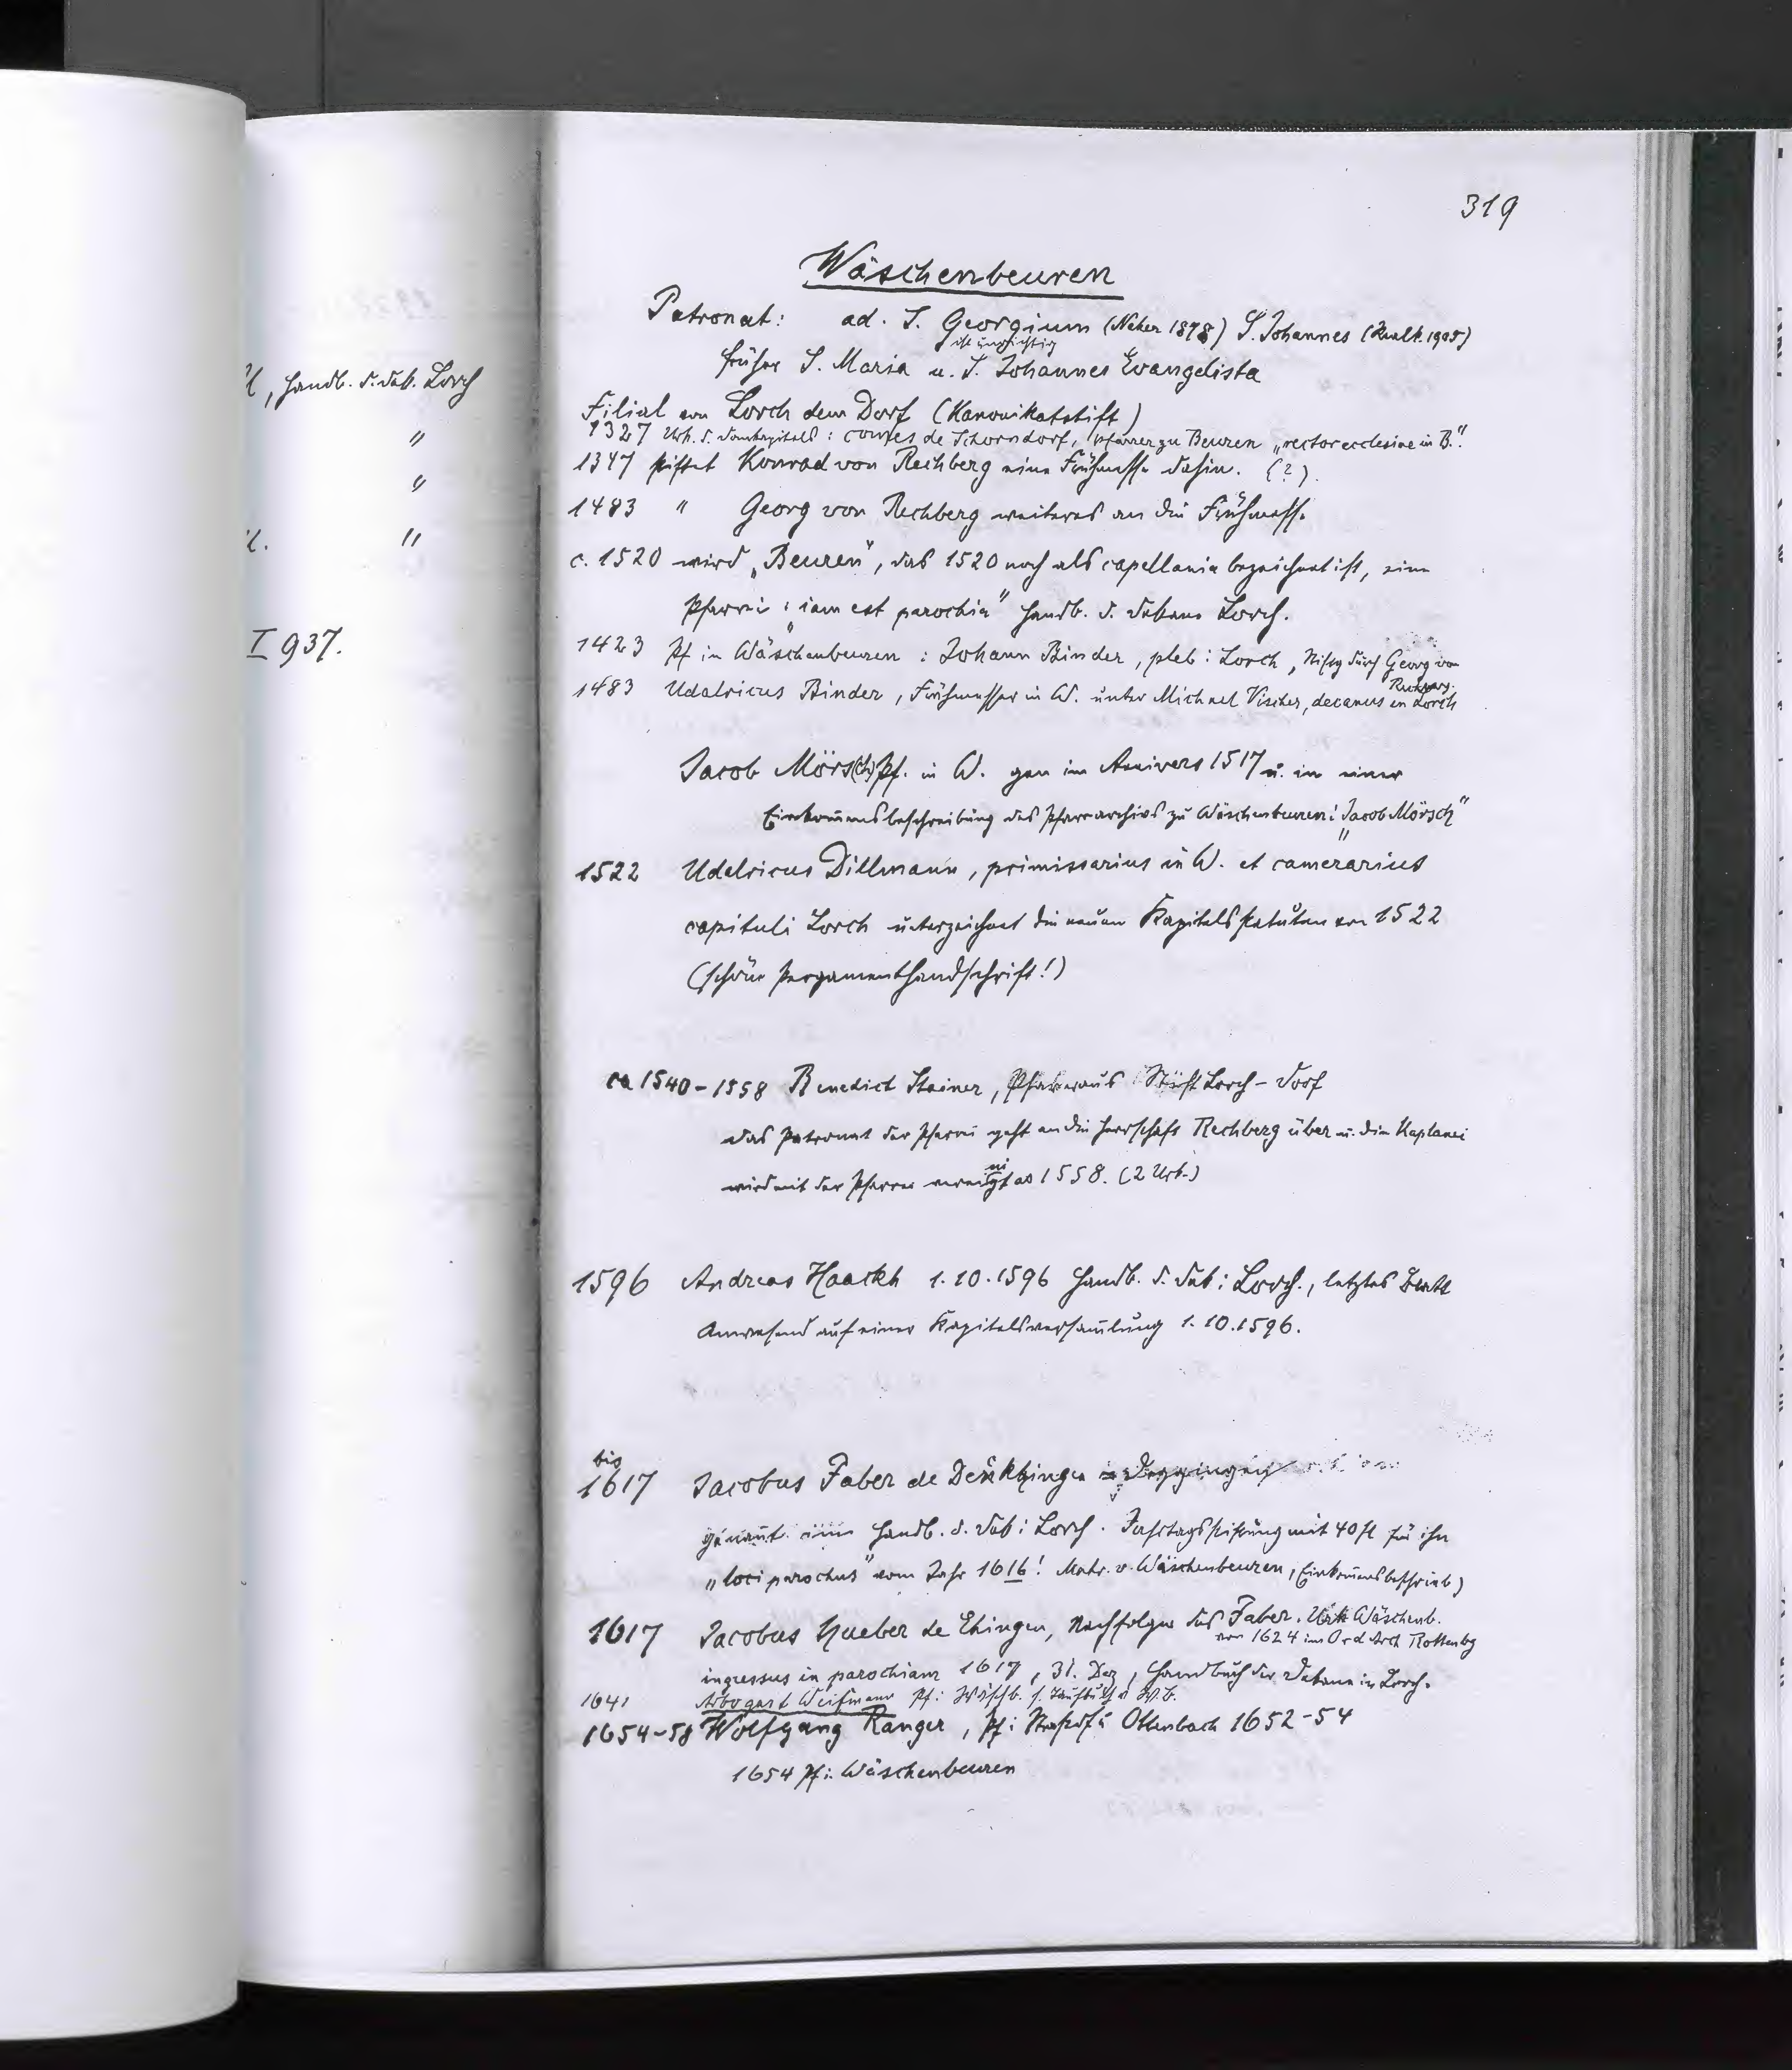 319
Wäschenbeuren
Patronat: ad. S. Georgium (Neher 1878) S. Johannes (Realk. 1905)
ist unrichtig
früher S. Maria u. S. Johannes Evangelista
Filial von Lorch dem Dorf (Kanonikatstift)
1327 Urk. d. Domkapitels: comes de Schorndorf, Pfarrer zu Beuren „rector ecclesiae in B."
1347 stiftet Konrad von Rechberg eine Frühmesse dahin. (?).
1483 " Georg von Rechberg weiteres an die Frühmesse.
c. 1520 wird „Beuren", das 1520 noch als capellania bezeichnet ist, eine
Pfarrei: „iam est parochia" Handb. d. Dekans Lorch.
1423 Pf in Wäschenbeuren: Johann Binder, pleb: Lorch, Stiftg durch Georg von
Rechberg.
1483 Udalricus Binder, Frühmesser in W. unter Michael Vischer, decanus in Lorch
Jacob Mörs(ch) Pf. in W. gen im Anivers 1517 u. in einer
Einkommensbeschreibung des Pfarrarchivs zu Wäschenbeuren: „Jacob Mörsch"
1522 Udalricus Dillmann, primissarius in W. et camerarius
capituli Lorch unterzeichnet die neuen Kapitelsstatuten von 1522
(schöne Pergamenthandschrift!)
ca 1540-1558 Benedict Steiner, Pfarrer aus Stift Lorch-Dorf
Das Patronat der Pfarrei geht an die Herrschaft Rechberg über u. die Kaplanei
wird mit der Pfarrei vereinigt ao 1558. (2 Urk.)
1596 Andreas Haackh 1.10.1596 Handb. d. Dek: Lorch., letztes Blatt
Anwesend auf einer Kapitelsversammlung 1.10.1596.
bis
1617 Jacobus Faber de Denkhingen
genannt im Handb. d. Dek: Lorch. Jahrtagsstiftung mit 40 fl für ihn
„loci parochus" vom Jahr 1616! Matr. v. Wäschenbeuren, Einkommensbeschrieb)
1617 Jacobus Hueber de Ehingen, Nachfolger des Faber. Urk Wäschenb.
von 1624 im Ord Arch Rottenbg
ingressus in parochiam 1617, 31. Dez, Handbuch der Dekane in Lorch.
1641 Arbogast Weismann Pf: Wäschb. s. Taufbuch v W.B.
1654-58 Wolfgang Ranger, Pf: Straßdf u Ottenbach 1652-54
1654 Pf: Wäschenbeuren
, Handb. d. Dek. Lorch
"
"
"
I 937.